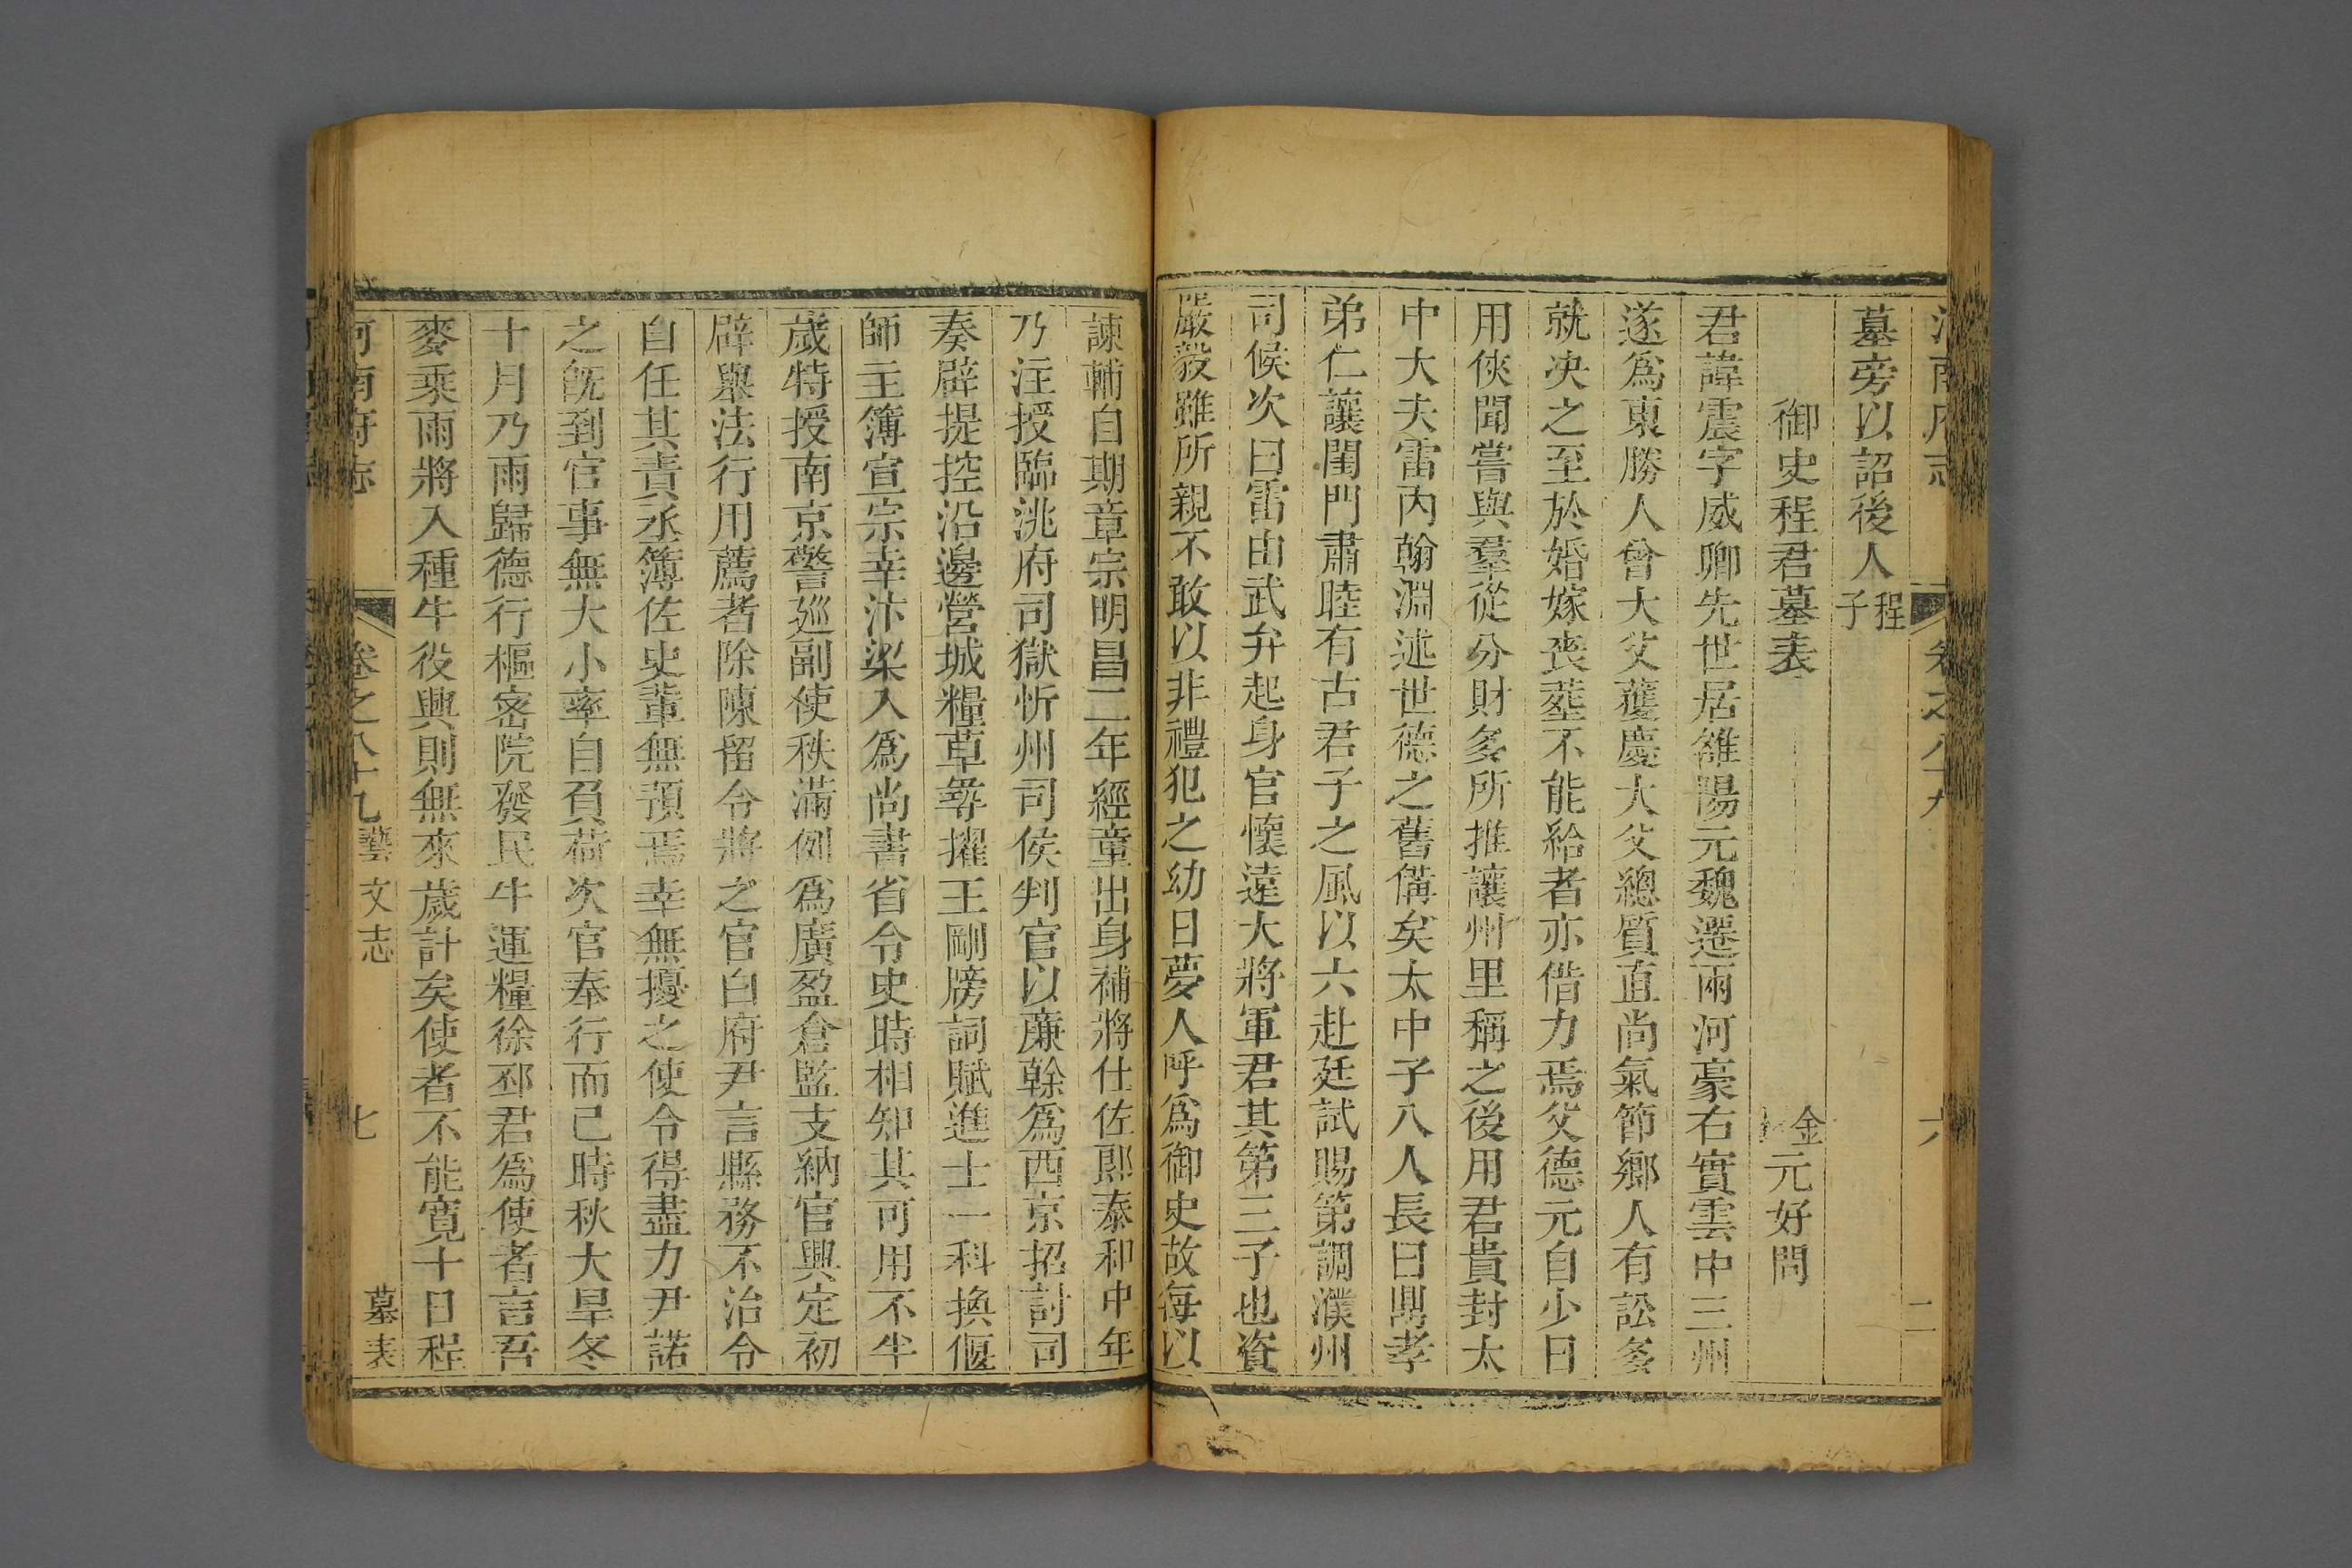 河南府志 卷之八十九 六
墓旁以詔後人程子
御史程君墓表 金元好問
君諱震字威卿先世居雒陽元魏遷兩河豪右實雲中三州
遂爲東勝人曾大父蕿慶大父總質直尚氣節鄉人有訟多
就决之至於婚嫁喪塟不能給者亦偕力焉父德元自少日
用俠聞嘗與羣從分財多所推讓州里稱之後用君貴封太
中大夫雷内翰淵述世德之舊備矣太中子八人長曰鼎孝
弟仁讓閨門肅睦有古君子之風以六赴廷試賜第調濮州
司候次曰雷由武弁起身官懷遠大將軍君其第三子也資
嚴毅雖所親不敢以非禮犯之幼日夢人呼爲御史故每以
諫輔自期章宗明昌二年經童出身補將仕佐郎泰和中年
乃注授臨洮府司獄忻州司侯判官以亷幹爲西京招討司
奏辟提控沿邊營城糧草尋擢王剛牓詞賦進士一科換偃
師主簿宣宗幸汴梁入爲尚書省令史時相知其可用不半
歲特授南京警廵副使秩滿例爲廣盈倉監支納官興定初
辟舉法行用薦者除陳留令將之官白府尹言縣務不治令
自任其責丞簿佐史輩無預焉幸無擾之使令得盡力尹諾
之旣到官事無大小率自負荷次官奉行而已時秋大旱冬
十月乃雨歸德行樞密院發民牛運糧徐邳君爲使者言吾
麥乘雨將入種牛役興則無來歲計矣使者不能寬十日程
河南府志 卷之八十九 藝文志 七 墓表